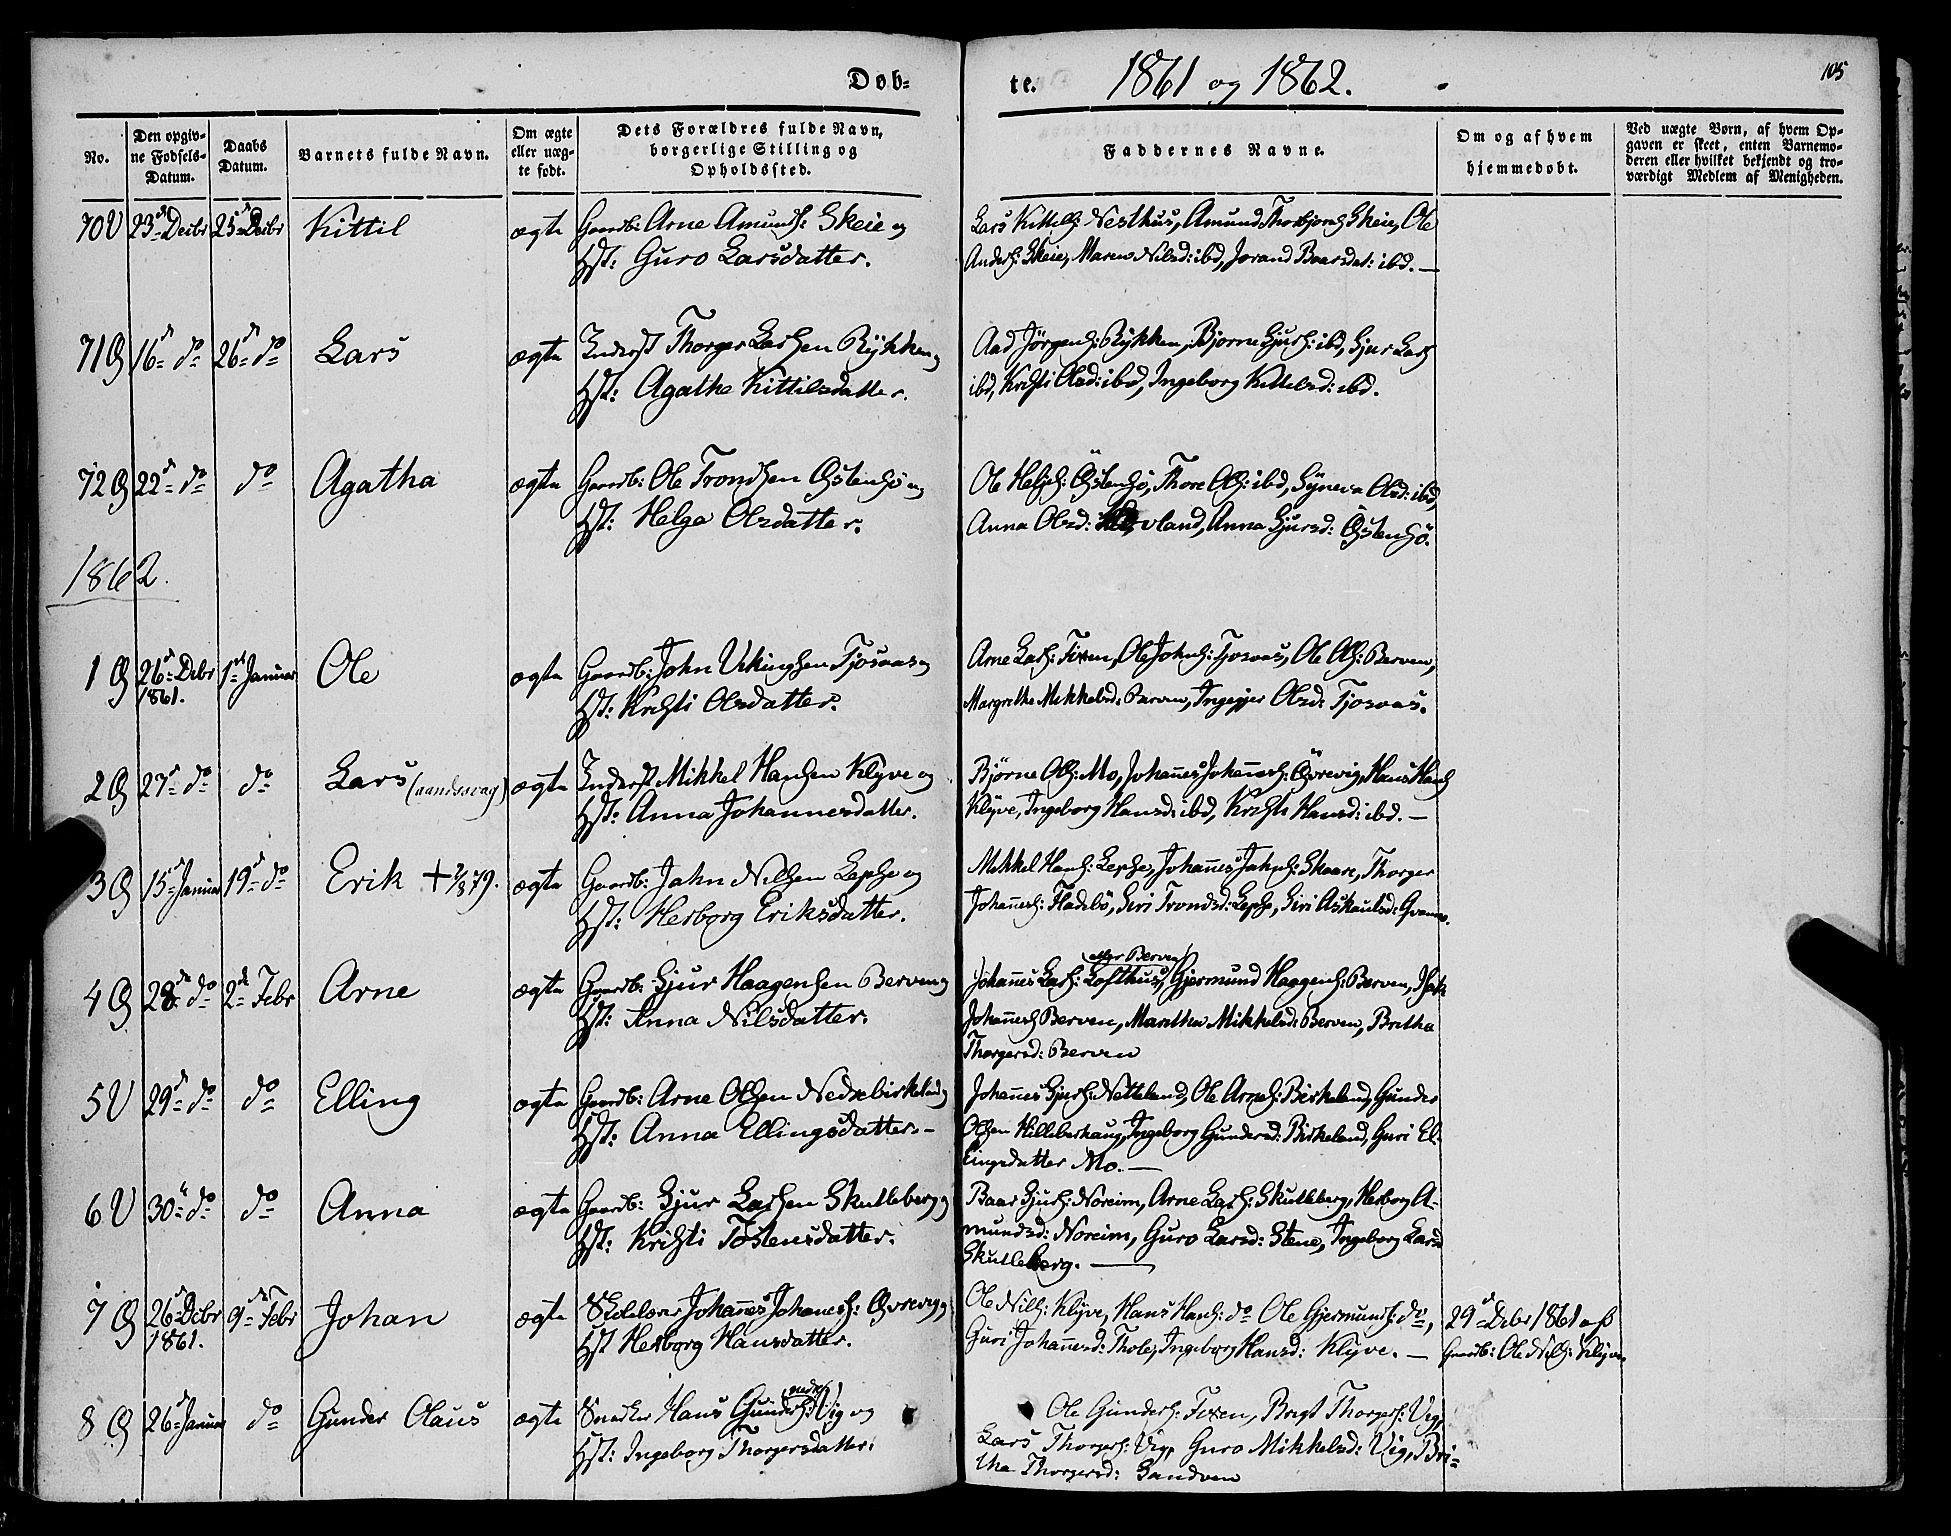 Döb-
te. 1861 og 1862.
105
No.
Den opgiv-
ne Födsels-
Datum.
Daabs
Datum.
Barnets fulde Navn.
Om ægte
eller uæg-
te födt.
Dets Forældres fulde Navn,
borgerlige Stilling og
Opholdssted.
Faddernes Navne.
Om og af hvem
hjemmedöbt.
Ved uægte Börn, af hvem Op-
gaven er skeet, enten Barnemo-
deren eller hvilket bekjendt og tro-
værdigt Medlem af Menigheden.
70 V 23de Decbr 25de Decbr Kittil ægte Gaardb: Arne Amunds: Skeie og
Hst: Guro Larsdatter.
Lars Kittils: Nesthus, Amund Thorbjörns: Skeie, Ole
Anders: Skeie, Maren Nilsd: ibd, Jorand Baarsdat: ibd. —
71 Ø 16de do 26de do Lars ægte Inderst Thorger Larsen Rykken og
Hst: Agatha Kittilsdatter.
Aad Jörgens: Rykken, Bjorne Sjurs: ibd, Sjur Lars:
ibd, Kristi Olsd: ibd, Ingeborg Kittelsd: ibd.
72 Ø 22de do do Agatha ægte Gaardb: Ole Trondsen Östensö og
Hst: Helga Olsdatter.
Ole Heljes: Östensö, Thore Ols: ibd, Syneva Olsd: ibd,
Anna Olsd: vland, Anna Sjursd: Östensö.
1862.
1 Ø 26de Debr 1ste Januar Ole ægte Gaardb: John Vikingsen Tjosaas og
1861. Hst: Kristi Olsdatter.
Arne Lars: Fixen, Ole Johns: Tjosaas, Ole Ols: Berven,
Margrethe Mikkelsd: Berven, Ingejer Olsd: Tjosaas.
2 Ø 27de do do Lars (aandssvag) ægte Inderst Mikkel Hansen Klyve og
Hst: Anna Johannesdatter.
Björne Ols: Mo, Johannes Johannes: Övrevig, Hans Hans:
Klyve, Ingeborg Hansd: ibd, Kristi Hansd: ibd. —
3 Ø 15de Januar 19de do Erik + 2/8 79. ægte Gaardb: John Nilsen Lepsö og
Hst: Herborg Eriksdatter.
Mikkel Hans: Lepsö, Johannes Johns: Skaare, Thorger
Johannes: Fladebö, Siri Trondsd: Lepsö, Siri Askaulsd: Qvamme.
4 Ø 28de do 2den Febr Arne ægte Gaardb: Sjur Haagensen Berven og
Hst: Anna Nilsdatter.
eller Berven
Johannes Lars: Lofthus, Gjermund Haagens: Berven, Isak
Johannes: Berven, Maritha Mikkelsd: Berven, Britha
Thorgersd: Berven
5 V 29de do do Elling ægte Gaardb: Arne Olsen Nedrebirkeland og
Hst: Anna Ellingsdatter. —
Johannes Sjurs: Netteland, Ole Arnes: Birkeland, Gunder
Olsen Hilleberhaug, Ingeborg Gundersd: Birkeland, Guri El-
lingsdatter Mo. —
6 V 30te do do Anna ægte Gaardb: Sjur Larsen Skutleberg og
Hst: Kristi Tostensdatter.
Baar Sjurs: Noreim, Arne Lars: Skutleberg, Herborg A-
mundsd: Noreim, Guro Larsd: Stene, Ingeborg Larsd
Skutleberg. —
7 Ø 26de Decbr 9de Febr Johan ægte Skolelærer Johannes Johannes: Övrevig og
1861. Hst Herborg Hansdatter.
Ole Nils: Klyve, Hans Hans: do Ole Gjermunds: do,
Guri Johannesd: Thole, Ingeborg Hansd: Klyve. —
29de Debr 1861 af
Gaardb: Ole Nils: Klyve
8 Ø 26de Januar do Gunder Olaus ægte Snedker Hans Gunders: (nedre) Vig og
Hst: Ingeborg Thorgersdatter.
Ole Gunders: Fixen, Brigt Thorgers: Vig,
Lars Thorgers: Vig, Guro Mikkelsd: Vig, Bri-
tha Thorgersd: Sandven